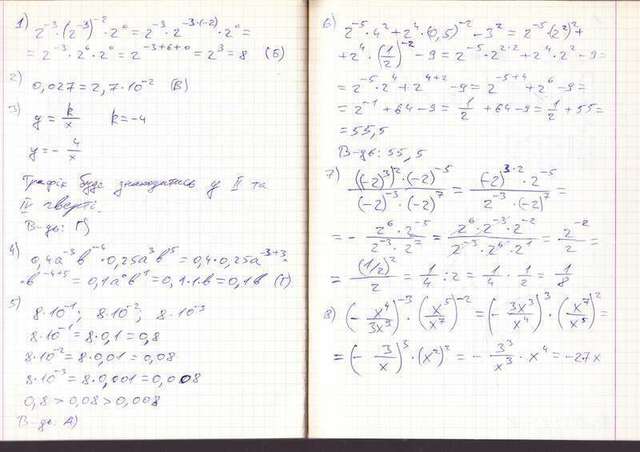 1) 2⁻³ · (2⁻³)⁻² · 2⁰ = 2⁻³ · 2⁻³·⁽⁻²⁾ · 2⁰ =
= 2⁻³ · 2⁶ · 2⁰ = 2⁻³⁺⁶⁺⁰ = 2³ = 8 (Б)
2) 0,027 = 2,7 · 10⁻² (В)
3) y = k/x k = -4
y = - 4/x
Графік буде знаходитись у II та
IV чверті.
В-дь: Г)
4) 0,4a⁻³b⁻⁴ · 0,25a³b⁵ = 0,4 · 0,25a⁻³⁺³ ·
· b⁻⁴⁺⁵ = 0,1a⁰b¹ = 0,1 · 1 · b = 0,1b (Г)
5) 8·10⁻¹; 8·10⁻²; 8·10⁻³
8·10⁻¹ = 8·0,1 = 0,8
8·10⁻² = 8·0,01 = 0,08
8·10⁻³ = 8·0,001 = 0,008
0,8 > 0,08 > 0,008
В-дь: А)
6) 2⁻⁵ · 4² + 2⁴ · (0,5)⁻² - 3² = 2⁻⁵ · (2²)² +
+ 2⁴ · (1/2)⁻² - 9 = 2⁻⁵ · 2²·² + 2⁴ · 2² - 9 =
= 2⁻⁵ · 2⁴ + 2⁴⁺² - 9 = 2⁻⁵⁺⁴ + 2⁶ - 9 =
= 2⁻¹ + 64 - 9 = 1/2 + 64 - 9 = 1/2 + 55 =
= 55,5
В-дь: 55,5
7) ((-2)³)² · (-2)⁻⁵ / (-2)⁻³ · (-2)⁷ = (-2)³·² · 2⁻⁵ / 2⁻³ · (-2)⁷ =
= - 2⁶ · 2⁻⁵ / 2⁻³ · 2⁷ = 2⁶ · 2⁻³ · 2⁻² / 2⁻³ · 2⁶ · 2¹ = 2⁻² / 2 =
= (1/2)² / 2 = 1/4 : 2 = 1/4 · 1/2 = 1/8
8) (- x⁴/3x³)⁻³ · (x⁵/x⁷)⁻² = (- 3x³/x⁴)³ · (x⁷/x⁵)² =
= (- 3/x)³ · (x²)² = - 3³/x³ · x⁴ = -27x